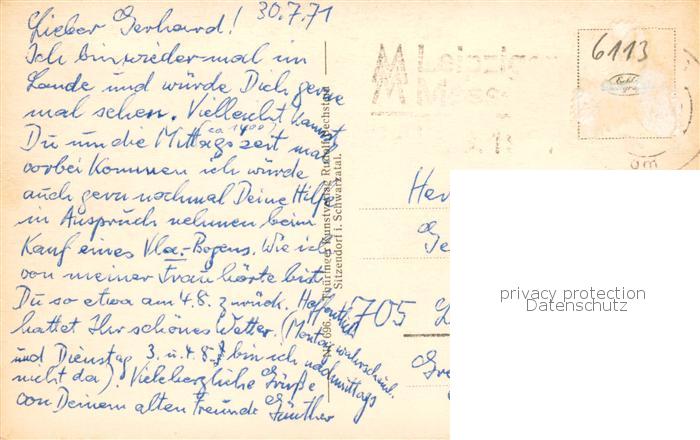 30.7.71
Lieber Gerhard!
Ich bin wieder mal im
Lande und würde Dich gerne
mal sehen. Vielleicht kannst
Du um die Mittagszeit mal
(ca 1400)
vorbei kommen ich würde
auch gern nochmal Deine Hilfe
in Anspruch nehmen beim
Kauf eines Vla.-Bogens. Wie ich
von meiner Frau hörte bist
Du so etwa am 4.8. zurück. Hoffentlich
hattet Ihr schönes Wetter. (Montag wahrscheinl.
und Dienstag 3. u. 4.8. bin ich nachmittags
nicht da). Viele herzliche Grüße
von Deinem alten Freunde Günther
Thüringer Kunstverlag Rudolf Bechstein
Sitzendorf i. Schwarzatal.
Leipziger
Messe
6113
705
privacy protection
Datenschutz